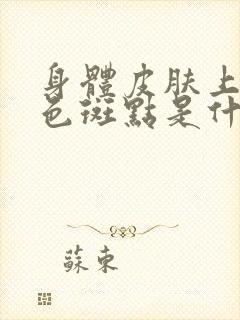 身體皮肤上
色斑點是什
蘇東